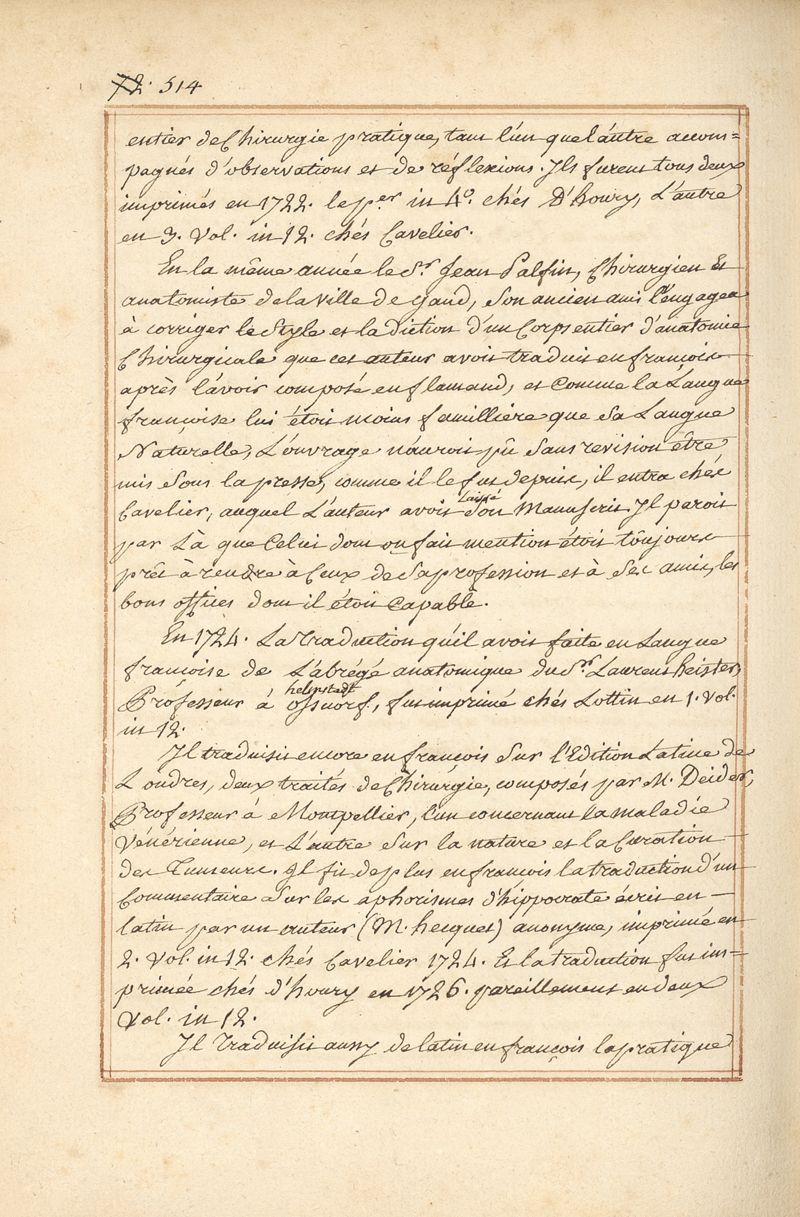 72. 514
entier de Chirurgie pratique, tant l'un que l'autre accom=
pagnés d'observations et de réflexions. Ils furent tous deux
imprimés en 1722. le per in 4º. chés D'houry, L'autre
en 3. Vol. in 12. chés Cavelier.
En la même année le Sr. Jean Palfin, Chirurgien et
anatomiste de la ville de Gand, Son ancien ami l'engagea
à corriger le Style et la diction d'un Corps entier d'anatomie
Chirurgicale que cet auteur avoit traduit en françois
après l'avoir composé en flamand, et Comme la Langue
françoise lui étoit moins famillière que Sa Langue
Naturelle, L'ouvrage n'auroit pû Sans revision être
mis Sous la presse, comme il le fut depuis, il entra chés
Cavelier, auquel L'auteur avoit laissé Son Manuscrit. Il paroit
par Là que Celui dont on fait mention étoit toûjours
prêt à rendre à Ceux de Sa profession et à Ses amis, les
bons offices dont il étoit Capable.
En 1724. La Traduction qu'il avoit faite en Langue
françoise de L'abrégé anatomique du Sr. Laurent heister,
Professeur à helmstedt ossuorf, fut imprimé chés Lottin en 1. Vol.
in 12.
Il traduisit encore en françois Sur l'Edition Latine de
Londres, deux traités de Chirurgie, composés par M. Deider,
Professeur à Montpellier, l'un concernant la maladie
Vénérienne, et L'autre Sur la nature et la Curation
des Tumeurs. Il fit de plus en françois la traduction d'un
Commentaire Sur les aphorismes d'hippocrate écrit en
latin par un auteur (M. hecquet) anonyme, imprimé en
2. Vol. in 12. chés Cavelier 1724. Et la traduction fut im=
primée chés d'houry en 1726. pareillement en deux
Vol. in 12.
Il Traduisit aussy de latin en françois la pratique